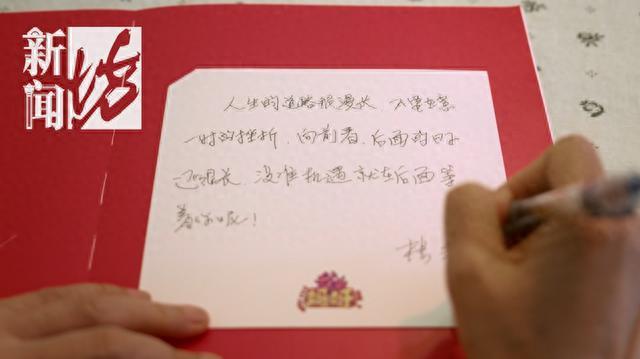 新闻
人生的道路很漫长，不要在意
一时的挫折，向前看，后面的日子
还很长，没准机遇就在后面等
着你呢！